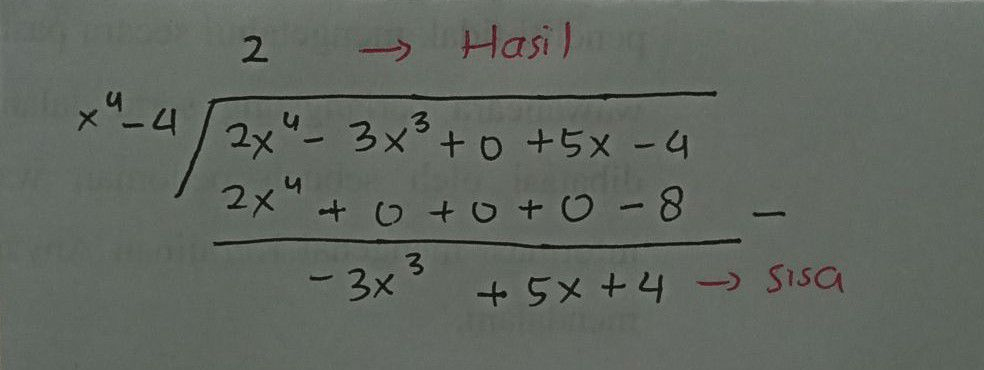 2 → Hasil
x⁴-4 / 2x⁴ - 3x³ + 0 + 5x - 4
2x⁴ + 0 + 0 + 0 - 8 -
- 3x³ + 5x + 4 → sisa